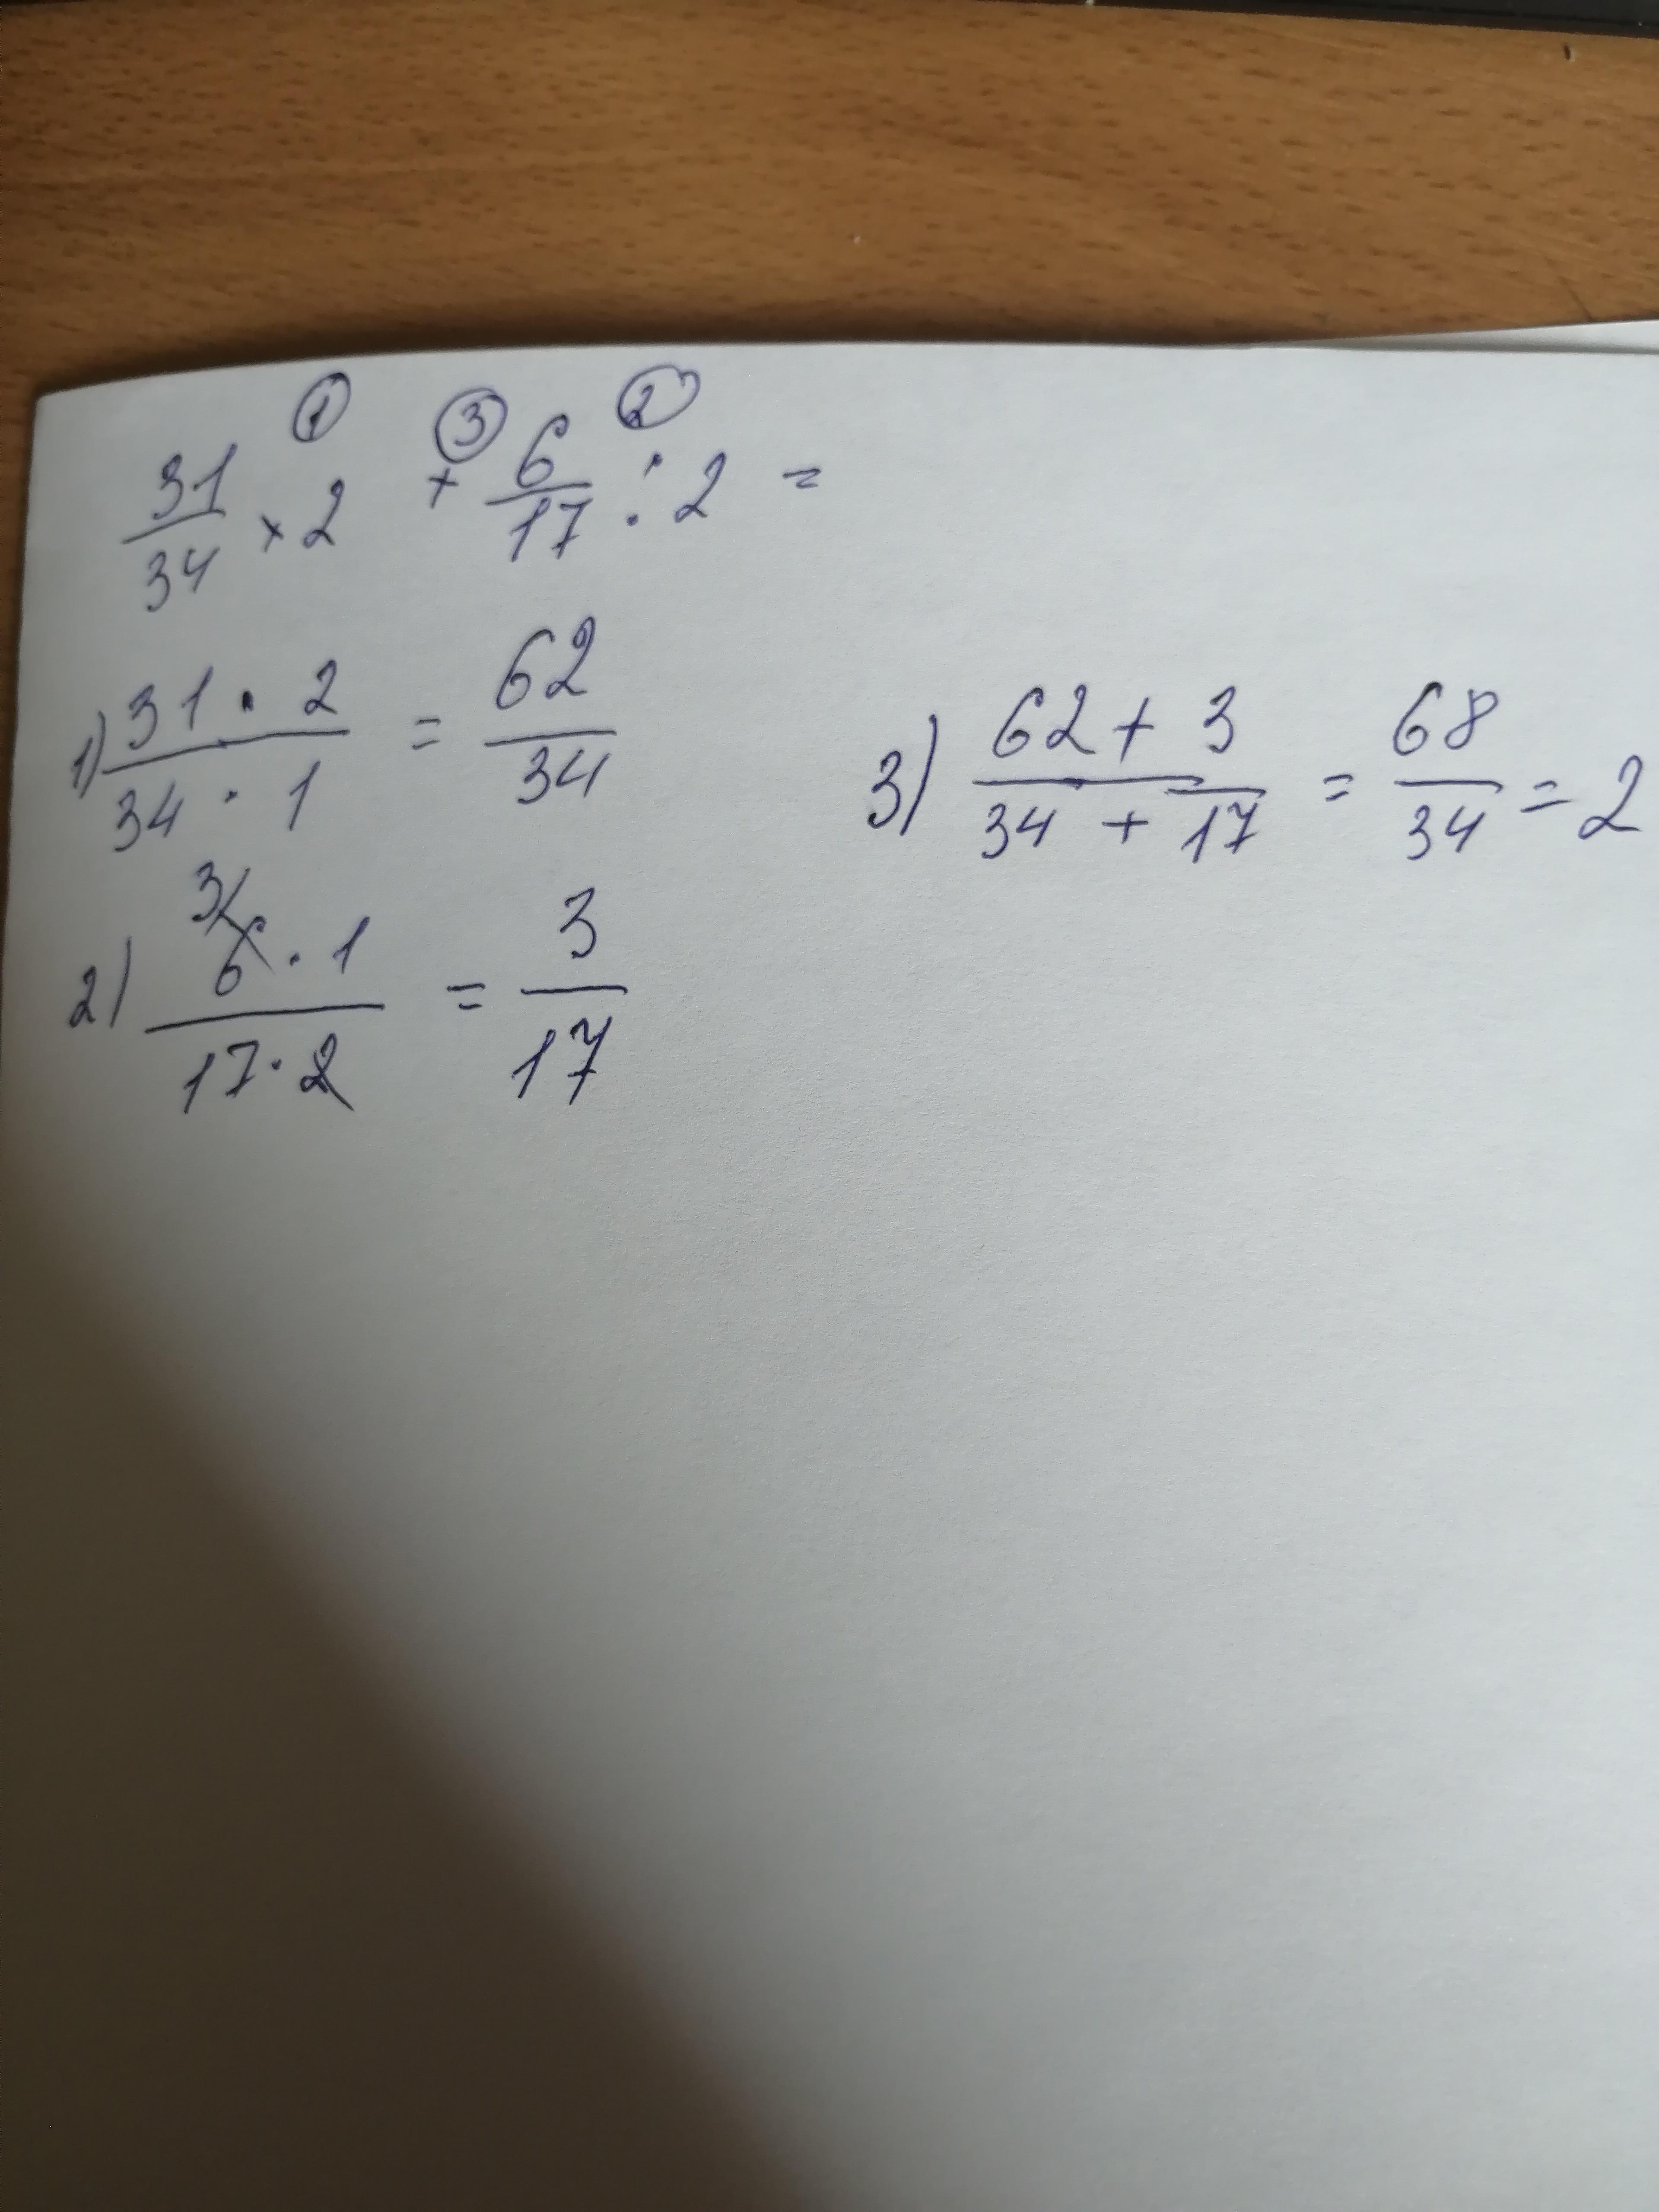 ① ③ ② 
31/34 × 2 + 6/17 : 2 =
1) 31 · 2 / 34 · 1 = 62/34
2) 3 6 · 1 / 17 · 2 = 3/17
3) 62/34 + 3/17 = 68/34 = 2